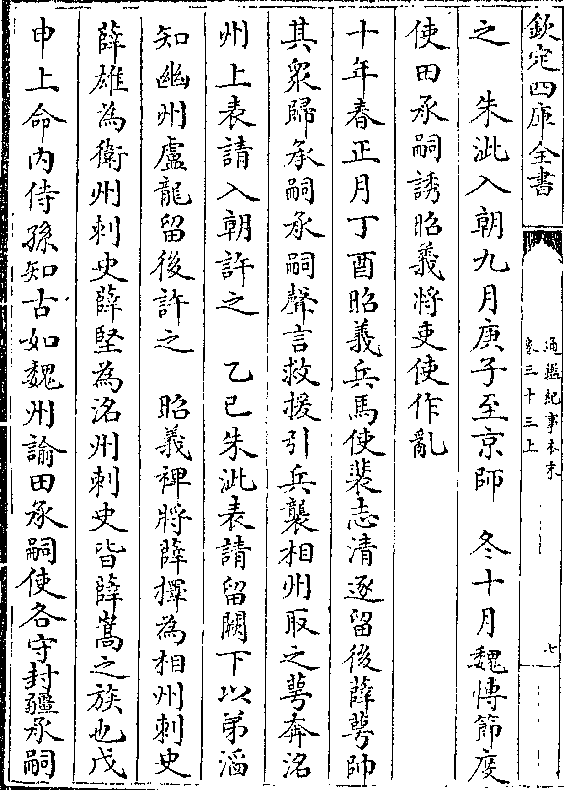 欽定四庫全書
通鑑紀事本末
卷三十三上
七
之　朱泚入朝九月庚子至京師　冬十月魏博節度
使田承嗣誘昭義將吏使作亂
十年春正月丁酉昭義兵馬使裴志清逐留後薛萼帥
其衆歸承嗣承嗣聲言救援引兵襲相州取之萼奔洺
州上表請入朝許之　乙巳朱泚表請留闕下以弟滔
知幽州盧龍留後許之　昭義裨將薛擇為相州刺史
薛雄為衛州刺史薛堅為洺州刺史皆薛嵩之族也戊
申上命内侍孫知古如魏州諭田承嗣使各守封疆承嗣